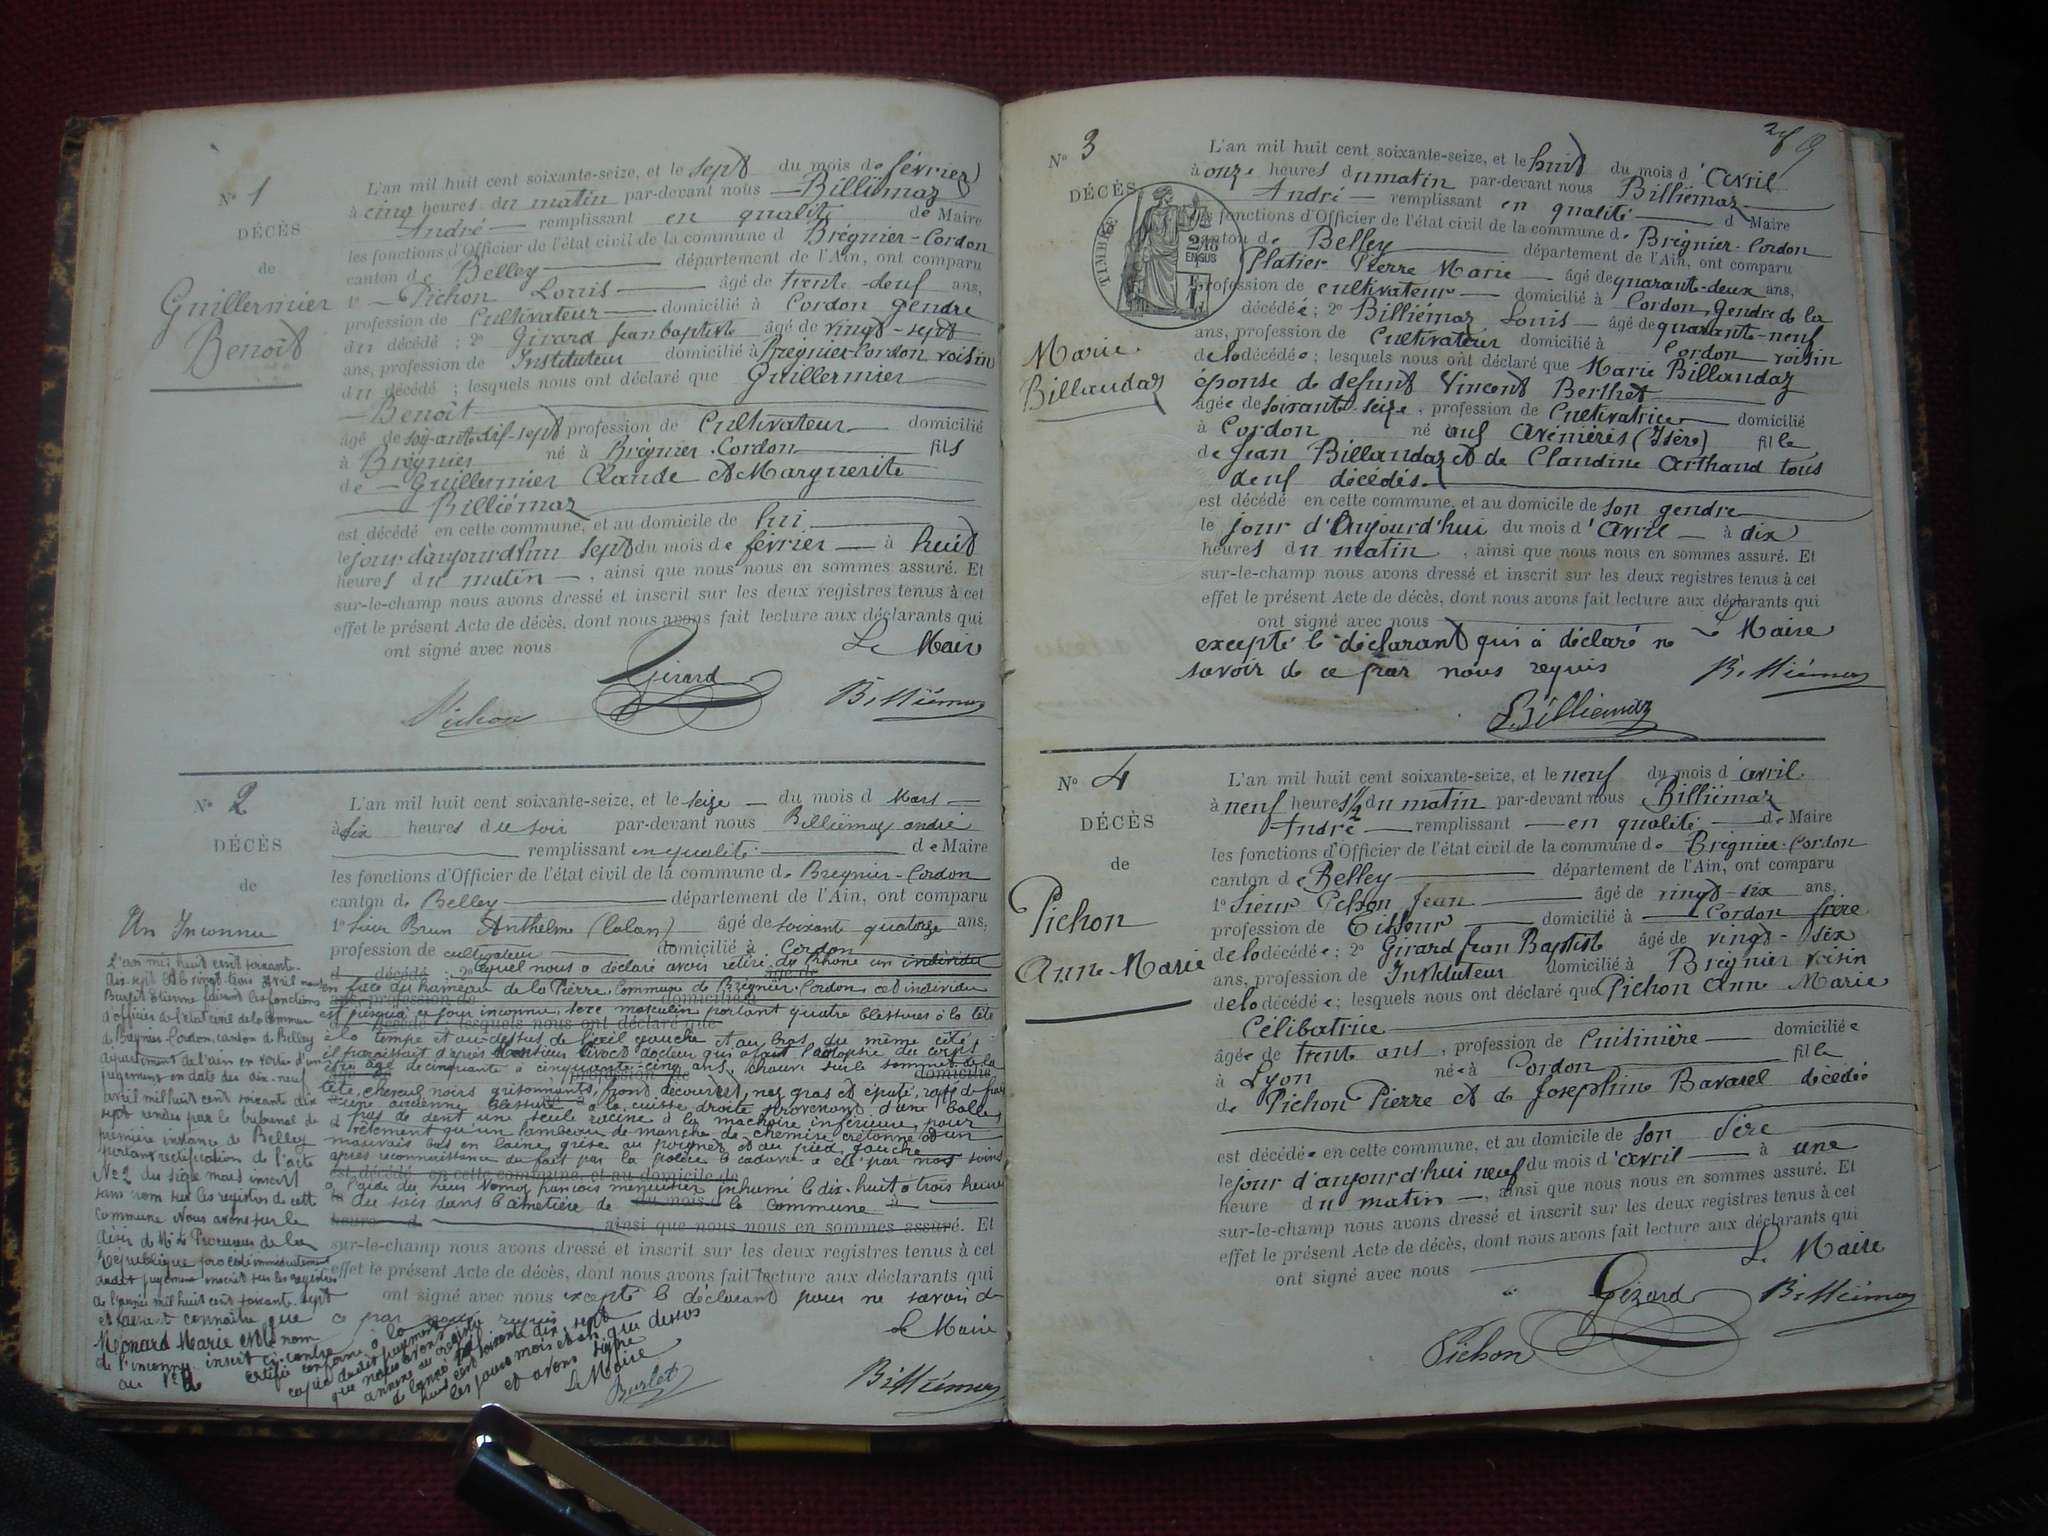 N° 1
DÉCÈS
de
Guillermier
Benoît
L'an mil huit cent soixante-seize, et le sept du mois de février
à cinq heures du matin par-devant nous Billiémaz
André remplissant en qualité de Maire
les fonctions d'Officier de l'état civil de la commune d Brégnier-Cordon
canton de Belley département de l'Ain, ont comparu
1° Pichon Louis âgé de trente-deuf ans,
profession de Cultivateur domicilié à Cordon gendre
du décédé ; 2° Girard Jean baptiste âgé de vingt-sept
ans, profession de Instituteur domicilié à Brégnier-Cordon voisin
du décédé ; lesquels nous ont déclaré que Guillermier
Benoît
âgé de soixante dif-sept profession de Cultivateur domicilié
à Brégnier né à Brégnier-Cordon fils
de Guillermier Claude et Marguerite
Billiémaz
est décédé en cette commune, et au domicile de lui
le jour d'aujourd'hui sept du mois de février à huit
heures du matin , ainsi que nous nous en sommes assuré. Et
sur-le-champ nous avons dressé et inscrit sur les deux registres tenus à cet
effet le présent Acte de décès, dont nous avons fait lecture aux déclarants qui
ont signé avec nous Le Maire
Pichon Girard Billiémaz
N° 2
DÉCÈS
de
Un Inconnu
L'an mil huit cent soixante-seize, et le seize du mois d Mars
à six heures du soir par-devant nous Billiémaz andré
remplissant en qualité de Maire
les fonctions d'Officier de l'état civil de la commune d. Bregnier-Cordon
canton de Belley département de l'Ain, ont comparu
1° sieur Brun Anthelme (Calan) âgé de soixante quatorze ans,
profession de cultivateur domicilié à Cordon
d décédé ; 2° lequel nous a déclaré avoir retiré du Rhône un individu
en face du hameau de la Pierre, Commune de Brégnier-Cordon, cet individu
est jusqu'à ce jour inconnu, sexe masculin portant quatre blessures à la tête
à la tempe et au-dessus de l'oeil gauche et au bras du même côté,
il paraissait d'après Monsieur docteur qui a fait l'autopsie du corps
être âgé de cinquante à cinquante-cinq ans, chauve sur le sommet de la
tête, cheveux noirs grisonnants, front découvert, nez gras et épaté,
une ancienne blessure à la cuisse droite provenant d'une balle,
pas de dent une seule racine à la machoire inférieure, pour
vêtement qu'un lambeau de manche de chemise cretonne et un
mauvais bas en laine, grise au poignet et au pied gauche
après reconnaissance du fait par la police le cadavre a été par nos soins
est décédé en cette commune, et au domicile de
à l'aide du sieur françois menuisier inhumé le dix-huit à trois heures
du soir dans le cimetière de la commune
ainsi que nous nous en sommes assuré. Et
sur-le-champ nous avons dressé et inscrit sur les deux registres tenus à cet
effet le présent Acte de décès, dont nous avons fait lecture aux déclarants qui
ont signé avec nous excepté le déclarant pour ne savoir d
ce par nous requis
Le Maire
Billiémaz
L'an mil huit cent soixante-
dix sept et le vingt trois Avril nous
Burlet Etienne faisant les fonctions
d'officier de l'état civil de la commune
de Brégnier-Cordon, canton de Belley
département de l'ain en vertu d'un
jugement en date du dix-neuf
avril mil huit cent soixante dix
sept rendu par le tribunal de
première instance de Belley
portant rectification de l'acte
N° 2 du seize mars inscrit
sans nom sur les registres de cette
commune Nous avons sur le
de Mr le Procureur de la
République procédé immédiatement
dudit jugement inscrit sur les registres
de l'année mil huit cent soixante-sept
connaître que
Meonard Marie est le nom
de l'inconnu inscrit ci-contre
au N° 2
certifié conforme à la
copie dudit jugement
que nous avons
annexé au registre
de l'année mil
huit cent soixante dix sept
les jours mois et an que dessus
et avons signé
Le Maire
Burlet
289
N° 3
DÉCÈS
TIMBRE
2/10
EN SUS
Marie
Billaudaz
L'an mil huit cent soixante-seize, et le huit du mois d'avril
à onze heures du matin par-devant nous Billiémaz
André remplissant en qualité d Maire
les fonctions d'Officier de l'état civil de la commune de Brégnier-Cordon
canton de Belley département de l'Ain, ont comparu
Platier Pierre Marie âgé de quarante-deux ans,
profession de cultivateur domicilié à Cordon, Gendre de la
décédée ; 2° Billiémaz Louis âgé de quarante-neuf
ans, profession de Cultivateur domicilié à Cordon voisin
de la décédée ; lesquels nous ont déclaré que Marie Billaudaz
éponse de défunt Vincent Berthet
âgée de soixante-seize , profession de Cultivatrice domicilié
à Cordon né auf Avénières (Isère) fille
de Jean Billaudaz et de Claudine Arthaud tous
deuf décédés
est décédé en cette commune, et au domicile de son gendre
le jour d'Aujourd'hui du mois d'avril à dix
heures du matin , ainsi que nous nous en sommes assuré. Et
sur-le-champ nous avons dressé et inscrit sur les deux registres tenus à cet
effet le présent Acte de décès, dont nous avons fait lecture aux déclarants qui
ont signé avec nous
excepté le déclarant qui à déclaré ne Le Maire
savoir de ce par nous requis Billiémaz
Billiémaz
N° 4
DÉCÈS
de
Pichon
Anne-Marie
L'an mil huit cent soixante-seize, et le neuf du mois d'avril
à neuf heures 1/2 du matin par-devant nous Billiémaz
André remplissant en qualité de Maire
les fonctions d'Officier de l'état civil de la commune de Brégnier-Cordon
canton de Belley département de l'Ain, ont comparu
1° Sieur Pchon Jean âgé de vingt-six ans,
profession de Tisseur domicilié à Cordon frère
de la décédée ; 2° Girard Jean Baptiste âgé de vingt-six
ans, profession de Instituteur domicilié à Bregnier voisin
de la décédée ; lesquels nous ont déclaré que Pichon Anne Marie
Célibatrice
âgée de trente ans , profession de Cuisinière domiciliée
à Lyon née à Cordon fille
de Pichon Pierre et de Joséphine Bavarel décédée
est décédée en cette commune, et au domicile de son Père
le jour d'aujourd'hui neuf du mois d'avril à une
heure du matin , ainsi que nous nous en sommes assuré. Et
sur-le-champ nous avons dressé et inscrit sur les deux registres tenus à cet
effet le présent Acte de décès, dont nous avons fait lecture aux déclarants qui
ont signé avec nous Le Maire
Pichon Girard Billiémaz